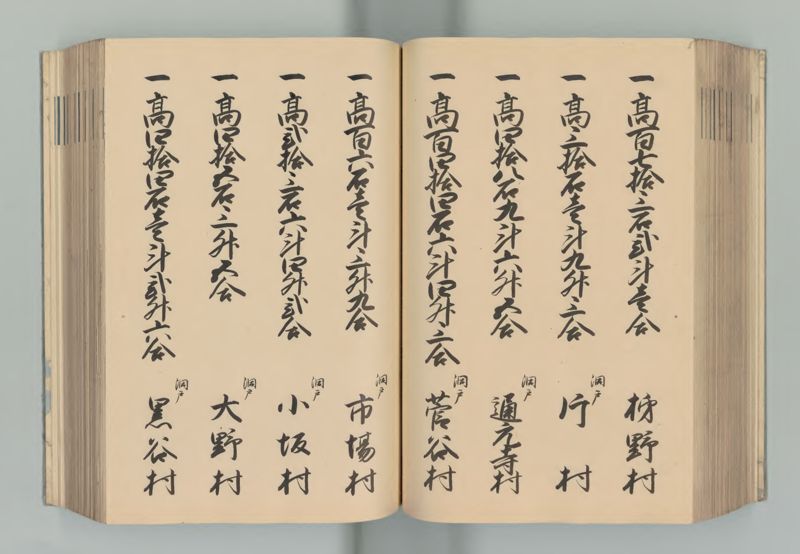 一 高百七拾三石弐斗壱合 柿野村
一 高三拾石壱斗九升三合 洞戸 片村
一 高四拾八石九斗六升五合 洞戸 通元寺村
一 高百四拾四石六斗四升三合 洞戸 菅谷村
一 高百六石壱斗三升九合 洞戸 市場村
一 高弐拾三石六斗四升弐合 洞戸 小坂村
一 高四拾五石三升五合 洞戸 大野村
一 高四拾四石壱斗弐升六合 洞戸 黒谷村